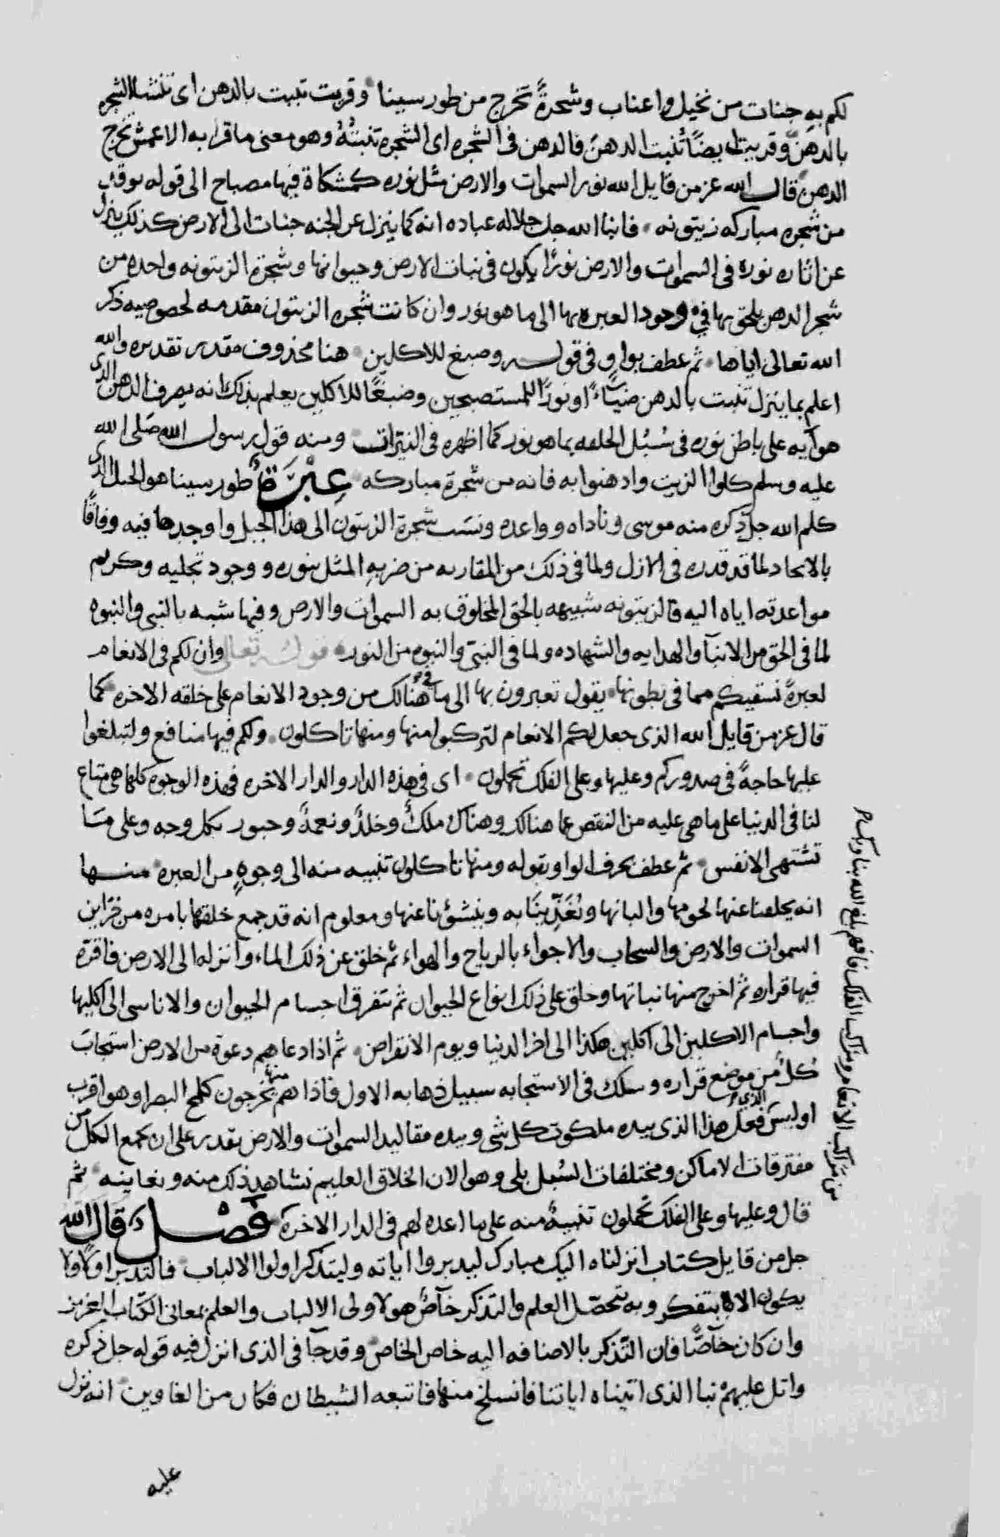 لكم به جنات من نخيل واعناب وشجرة تخرج من طور سينا وقريت تنبت بالدهن اى تنشا الشجره
بالدهن وقريت ايضا تنبت الدهن فالدهن فى الشجره اى الشجره تنبته وهو معنى ما قرا به الاعمش تخرج
الدهن قال الله عز من قايل الله نور السموات والارض مثل نوره كمشكاة فيها مصباح الى قوله يوقد
من شجره مباركه زيتونه فانبا الله جل جلاله عباده انه كما ينزل عن الجنه جنات الى الارض كذلك ينزل
عن اثاره نوره فى السموات والارض نورا يكون فى نبات الارض وحيوانها وشجرة الزيتونه واحده من
شجر الدهن يلحق بها فى وجود العبره بها الى ما هو نور وان كانت شجره الزيتون مقدمه لخصوصيه ذكر
الله تعالى اياها ثم عطف بواو فى قوله وصبغ للاكلين هنا محذوف مقدر تقديره والله
اعلم بما ينزل تنبت بالدهن ضياء او نورا للمستصبحين وصبغا للاكلين يعلم بذلك انه يعرف الدهن الذى
هو ايه على باطن نوره فى سبل الحلقه بما هو نور كما اظهره فى النيرات ومنه قول رسول الله صلى الله
عليه وسلم كلوا الزيت وادهنوا به فانه من شجرة مباركه عبرة طور سينا هو الجبل الذى
كلم الله جل ذكره منه موسى وناداه وواعده ونسب شجرة الزيتون الى هذا الجبل واوجدها فيه وفاقا
بالايجاد لما قد قدره فى الازل ولما فى ذلك من المقاربه من ضربه المثل بنوره ووجود تجليه وكريم
مواعدته اياه اليه فالزيتونه شبيهه بالحق المخلوق به السموات والارض وفيها شبه بالنبى والنبوه
لما فى الحق من الانبآ والهدايه والشهاده ولما فى النبى والنبوه من النور قوله تعالى وان لكم فى الانعام
لعبرة نسقيكم مما فى بطونها يقول تعبرون بها الى ما فى هنالك من وجود الانعام على خلقه الاخره كما
قال عز من قايل الله الذى جعل لكم الانعام لتركبوا منها ومنها تاكلون ولكم فيها منافع ولتبلغوا
عليها حاجة فى صدوركم وعليها وعلى الفلك تحملون اى فى هذه الدار والدار الاخره فهذه الوجوه كلها هى متاع
لنا فى الدنيا على ما هى عليه من النقص عما هنالك وهناك ملك وخلد ونعمة وحبور بكل وجه وعلى ما
تشتهى الانفس ثم عطف بحرف الواو بقوله ومنها تاكلون تنبيه منه الى وجوه من العبره منها
انه يخلقنا عنها لحومها والبانها ونغذينا به وينشؤنا عنها ومعلوم انه قد جمع خلقها بامره من خزاين
السموات والارض والسحاب والاجواء بالرياح والهواء ثم خلق عن ذلك الماء وانزله الى الارض فاقره
فيها قراره ثم اخرج منها نباتها وخلق على ذلك انواع الحيوان ثم تتفرق اجسام الحيوان والاناسى الى اكليها
واجسام الاكلين الى اكلين هكذا الى اخر الدنيا ويوم الانقراض ثم اذا دعاهم دعوة من الارض استجاب
كل من موضع قراره وسلك فى الاستجابه سبيل ذهابه الاول فاذا هم منها تخرجون كلمح البصر او هو اقرب
اوليس فعل هذا الذى بيده ملكوت كل شى وبيده مقاليد السموات والارض بقدر على ان يجمع الكل من
مفترقات الاماكن ومختلفات السبل بلى وهو الان الخلاق العليم نشاهد ذلك منه ونعاينه ثم
قال وعليها وعلى الفلك تحملون تنبيه منه على ما اعده لهم فى الدار الاخره فصل قال الله
جل من قايل كتاب انزلناه اليك مبارك ليدبروا اياته وليتذكر اولوا الالباب فالتدبر اولا ولا
يكون الا بتفكر وبه يتحصل العلم والتذكر خاص هو لاولى الالباب والعلم بمعانى الكتاب العزيز
وان كان خاصا فان التذكر بالاضافه اليه خاص الخاص وقد جآ فى الذى انزل فيه قوله جل ذكره
واتل عليهم نبا الذى اتيناه اياتنا فانسلخ منها فاتبعه الشيطان فكان من الغاوين انه نزل
عليه
من مراكب الانعام ومراكب الفلك فافهم بلغ الله بنا وبك